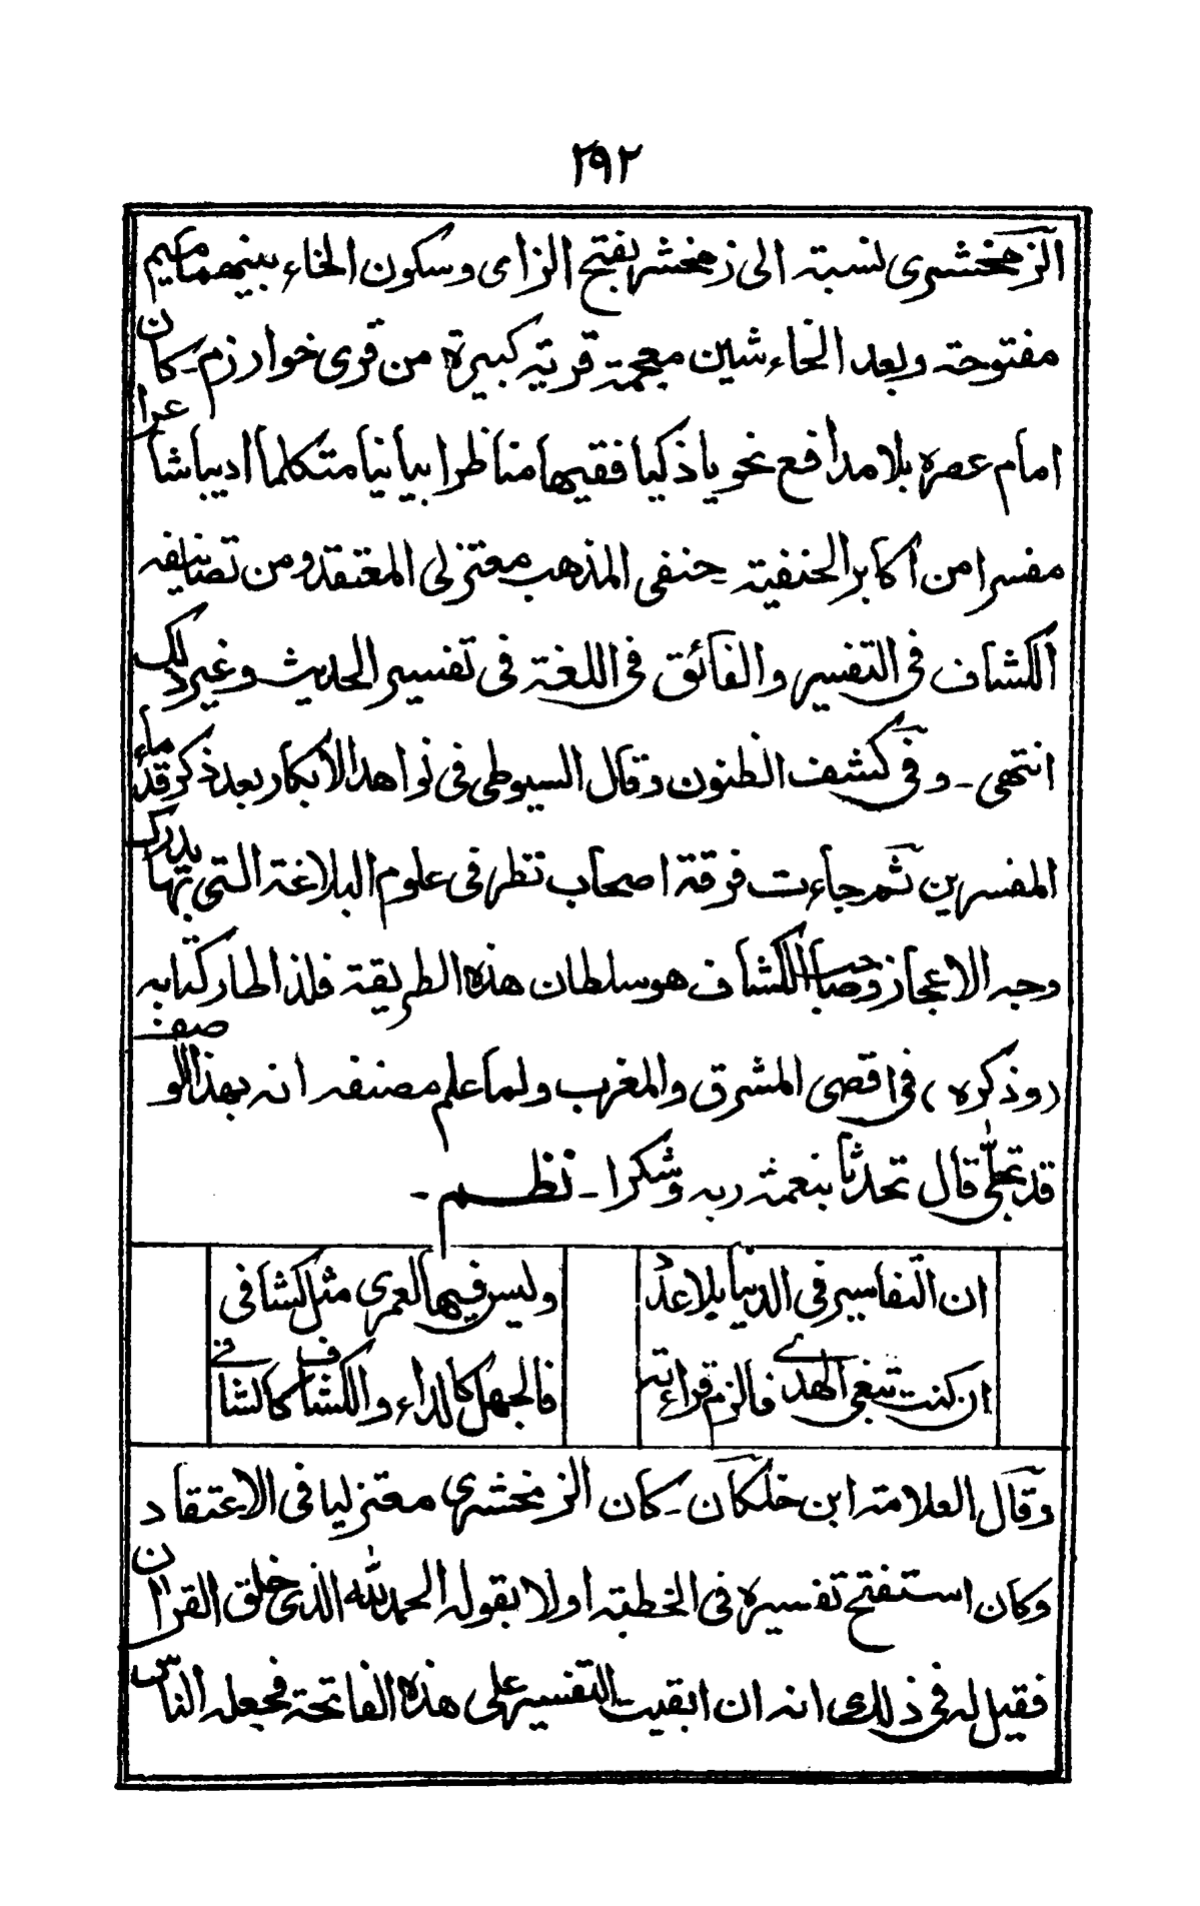 ٢٩٢
الزمخشری نسبتہ الی زمخشر بفتح الزای وسکون الخاء بینھما میم
مفتوحتہ وبعد الخاء شین معجمۃ قریتہ کبیرۃ من قری خوارزم ۔ کان
امام عصرہ بلا مدافع نحویا ذکیا فقیھا مناظرا بیانیا متکلما ادیبا شاعرا
مفسرا من اکابر الحنفیتہ ۔ حنفی المذھب معتزلی المعتقد ومن تصانیفہ
الکشاف فی التفسیر والفائق فی اللغۃ فی تفسیر الحدیث وغیر ذلک
انتھی ۔ وفی کشف الظنون وقال السیوطی فی نواھد الابکار بعد ذکر قدماء
المفسرین ثم جاءت فرقۃ اصحاب نظر فی علوم البلاغۃ التی بھا یدرک
وجہ الاعجاز وصاحب الکشاف ھو سلطان ھذہ الطریقۃ فلذا طار کتابہ
(وذکرہ) فی اقصی المشرق والمغرب ولما علم مصنفہ انہ بھذا الوصف
قد تجلّی قال تحدثا بنعمۃ ربہ وشکرا ۔ نظم ۔
ان التفاسیر فی الدنیا بلا عدد ولیس فیھا لعمری مثل کشافی
ان کنت تبغی الھدی فالزم قراءتہ فالجھل کالداء والکشاف کالشافی
وقال العلامتہ ابن خلکان ۔ کان الزمخشری معتزلیا فی الاعتقاد
وکان استفتح تفسیرہ فی الخطبتہ اولا بقولہ الحمد للہ الذی خلق القرآن
فقیل لہ فی ذلک انہ ان ابقیت التفسیر علی ھذہ الفاتحۃ فجعلہ الناس